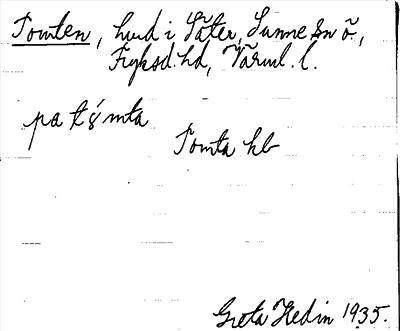 Tomten, hmd i Säter, Sunne sn ö.,
Fryksd. hd, Värml. l.
pa tǫ́mta
Tomta hb
Greta Hedin 1935.